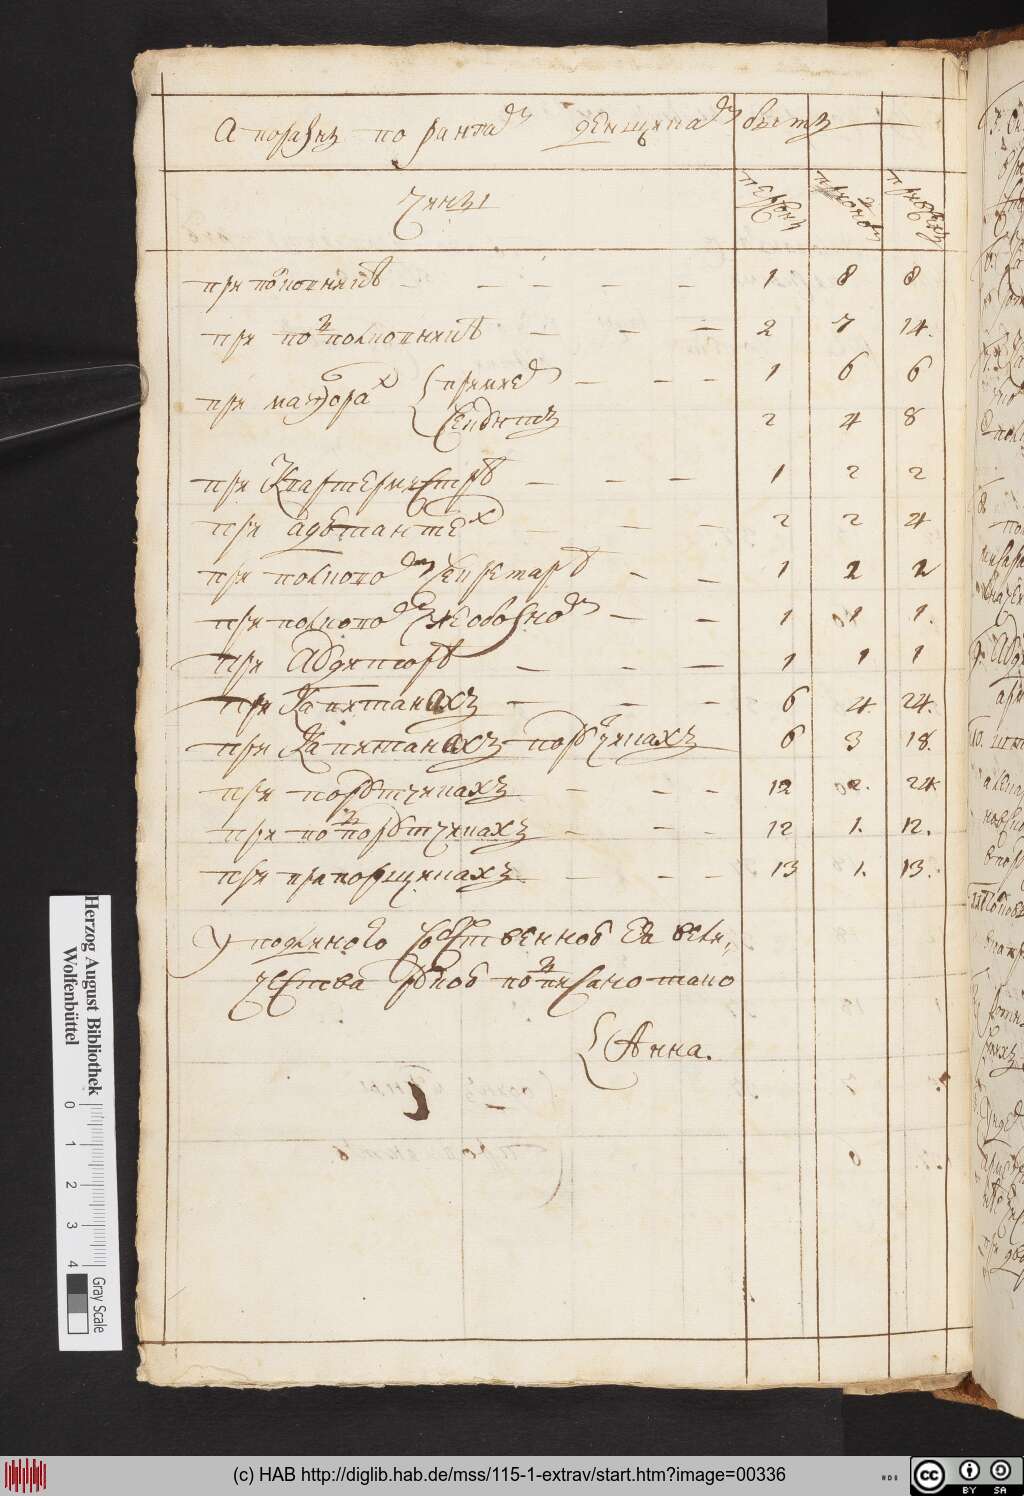 А поразнь по рангам денщикам быть
Чины
персонъ
при полковнике 1 8 8
при подполковнике 2 7 14.
при маеорах премиер 1 6 6
секундъ 2 4 8
при квартермистре 1 2 2
при адъютантех 2 2 4
при полковом секретаре 1 2 2
при полковом же обозном 1 1 1.
при аудиторе 1 1 1
при капитанахъ 6 4. 24.
при капитанахъ порутчикахъ 6 3 18.
при порутчикахъ 12 2. 24
при подпорутчикахъ 12 1. 12.
при прапорщикахъ 13 1. 13.
У подлиного собственною Ея вели,
чества рукою подписано тако
Анна.
Herzog August Bibliothek
Wolfenbüttel
0 1 2 3 4
Gray Scale
(c) HAB http://diglib.hab.de/mss/115-1-extrav/start.htm?image=00336
cc BY SA